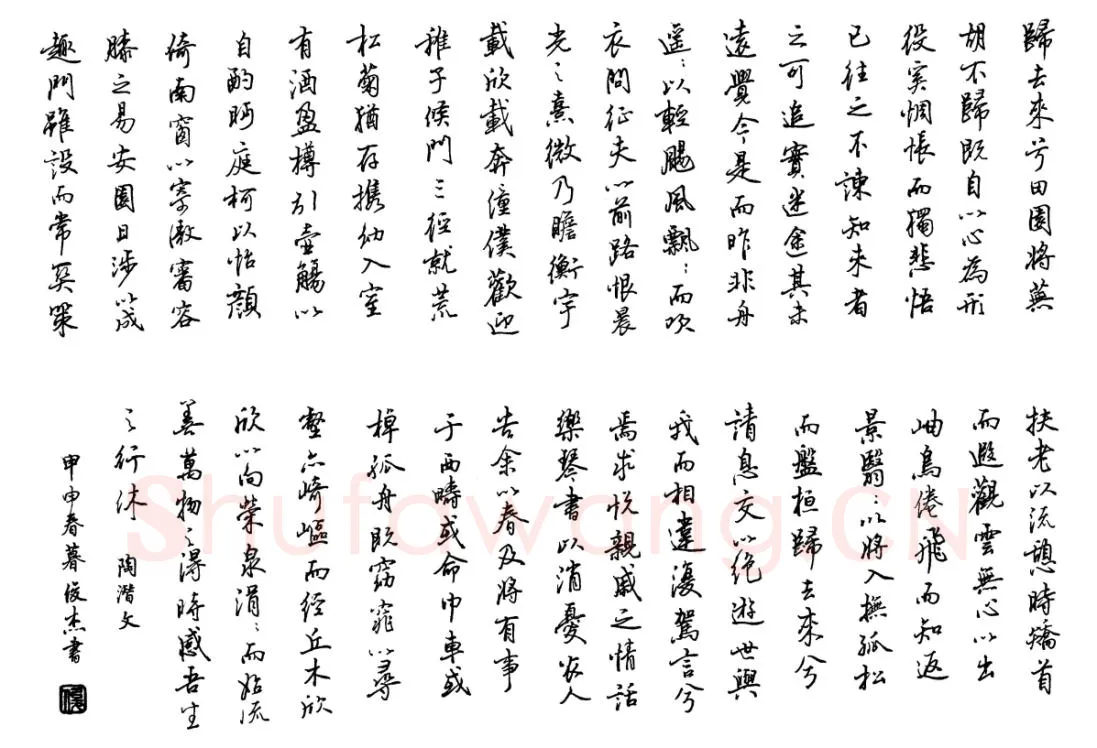 歸去來兮田園將蕪
胡不歸既自以心為形
役奚惆悵而獨悲悟
已往之不諫知來者
之可追實迷途其未
遠覺今是而昨非舟
遥〻以輕颺風飄〻而吹
衣問征夫以前路恨晨
光之熹微乃瞻衡宇
載欣載奔僮僕歡迎
稚子候門三徑就荒
松菊猶存携幼入室
有酒盈樽引壺觴以
自酌眄庭柯以怡顏
倚南窗以寄傲審容
膝之易安園日涉以成
趣門雖設而常關策
扶老以流憩時矯首
而遐觀雲無心以出
岫鳥倦飛而知返
景翳〻以將入撫孤松
而盤桓歸去來兮
請息交以絶遊世與
我而相違復駕言兮
焉求悅親戚之情話
樂琴書以消憂農人
告余以春及將有事
于西疇或命巾車或
棹孤舟既窈窕以尋
壑亦崎嶇而經丘木欣
欣以向榮泉涓〻而始流
善萬物之得時感吾生
之行休 陶潛文
甲申春暮俊杰書
Shufawang.CN